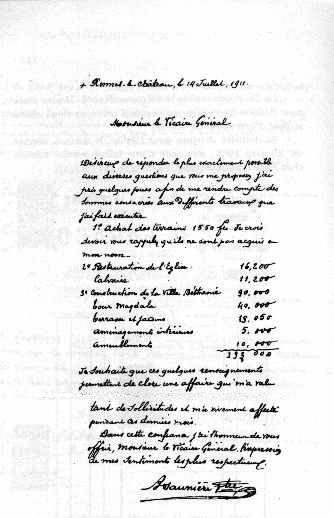 + Rennes-le-Château, le 14 Juillet, 1911.
Monsieur le Vicaire Général.
Désireux de répondre le plus exactement possible
aux diverses questions que vous me proposez, j'ai
pris quelques jours afin de me rendre compte des
sommes consacrées aux différents travaux que
j'ai fait exécuter.
1º Achat des terrains 1550 fr. Je crois
devoir vous rappeler qu'ils ne sont pas acquis en
mon nom.
2º Restauration de l'Eglise 16,200
Calvaire 11,200
3º Construction de la Villa Béthanie 90,000
Tour Magdala 40,000
Terrasse et jardins 19,050
aménagements intérieurs 5,000
ameublements 10,000
193,000
Je souhaite que ces quelques renseignements
permettent de clore une affaire qui m'a valu
tant de sollicitudes et m'a vivement affecté
pendant ces derniers mois.
Dans cette confiance j'ai l'honneur de vous
offrir, Monsieur le Vicaire Général, l'expression
de mes sentiments les plus respectueux.
BSaunière ptre